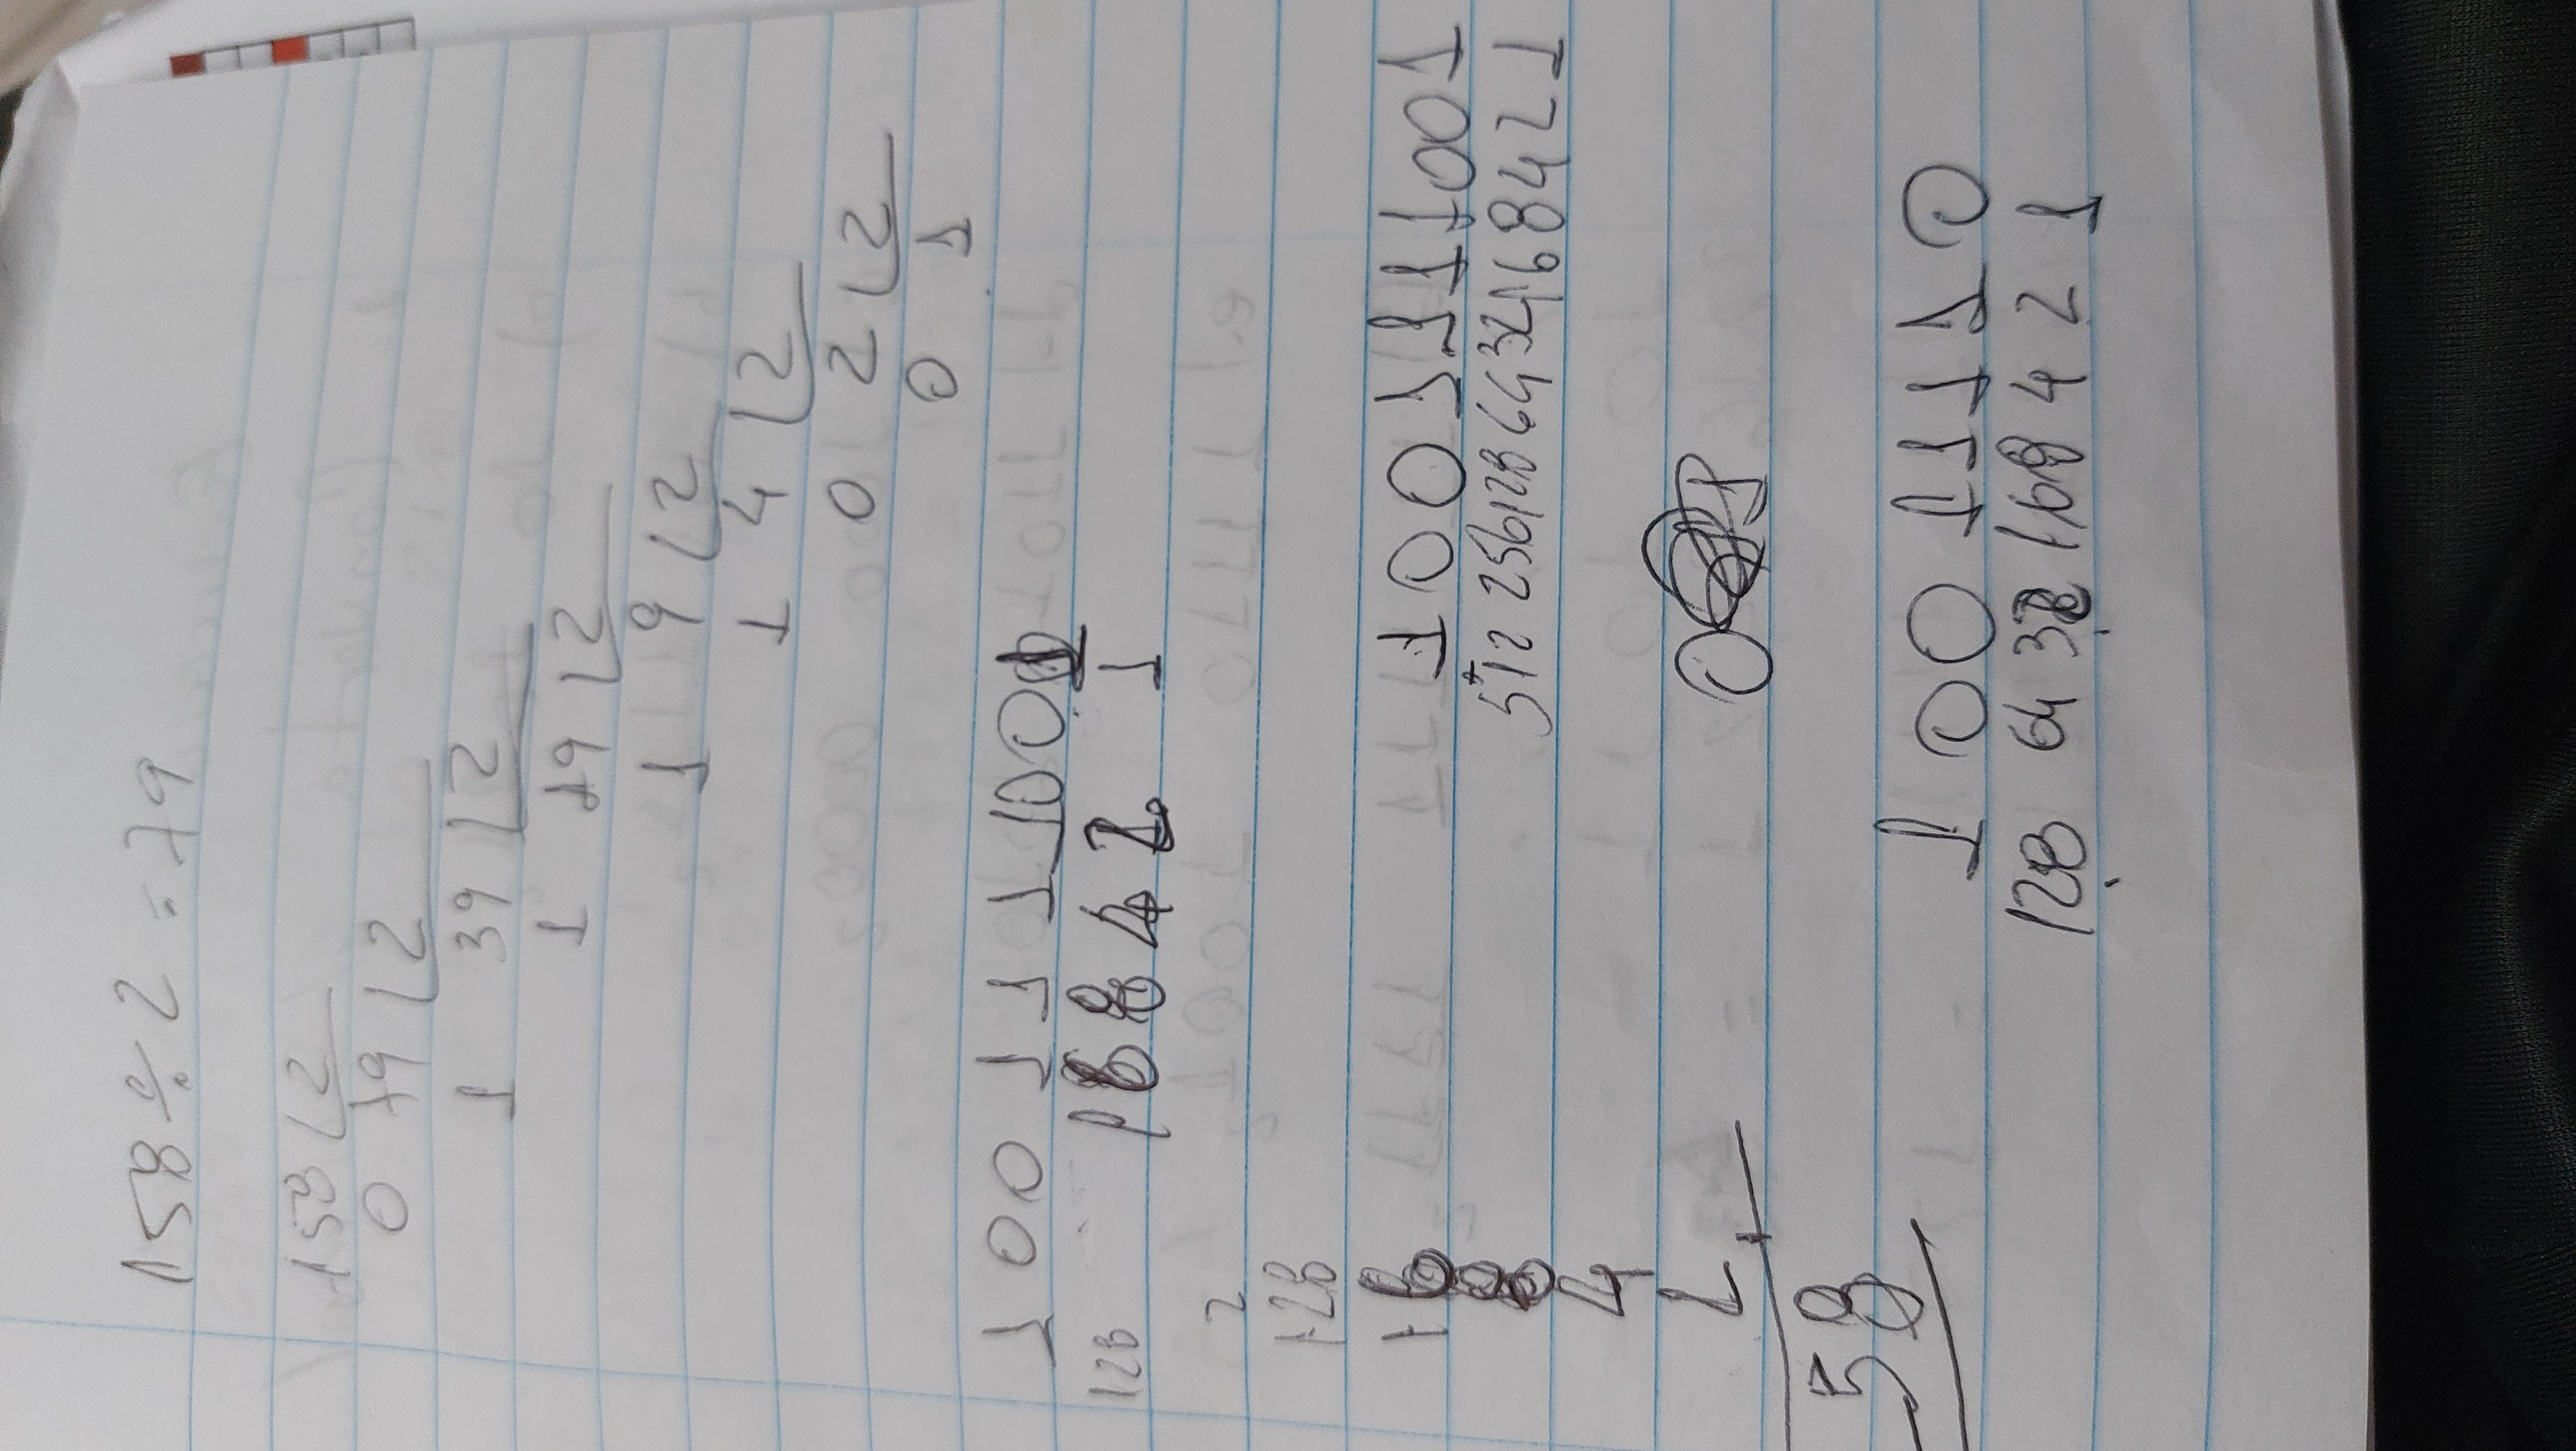 158 ÷ 2 = 79
158 2
0 79 2
1 39 2
1 19 2
1 9 2
1 4 2
0 2 2
0 1
1 0 0 1 1 1 1 0 0 1
128 16 8 4 2 1
2
128
16
8
4
2
58
1 0 0 1 1 1 1 0 0 1
512 256 128 64 32 16 8 4 2 1
0
1 0 0 1 1 1 1 0
128 64 32 16 8 4 2 1